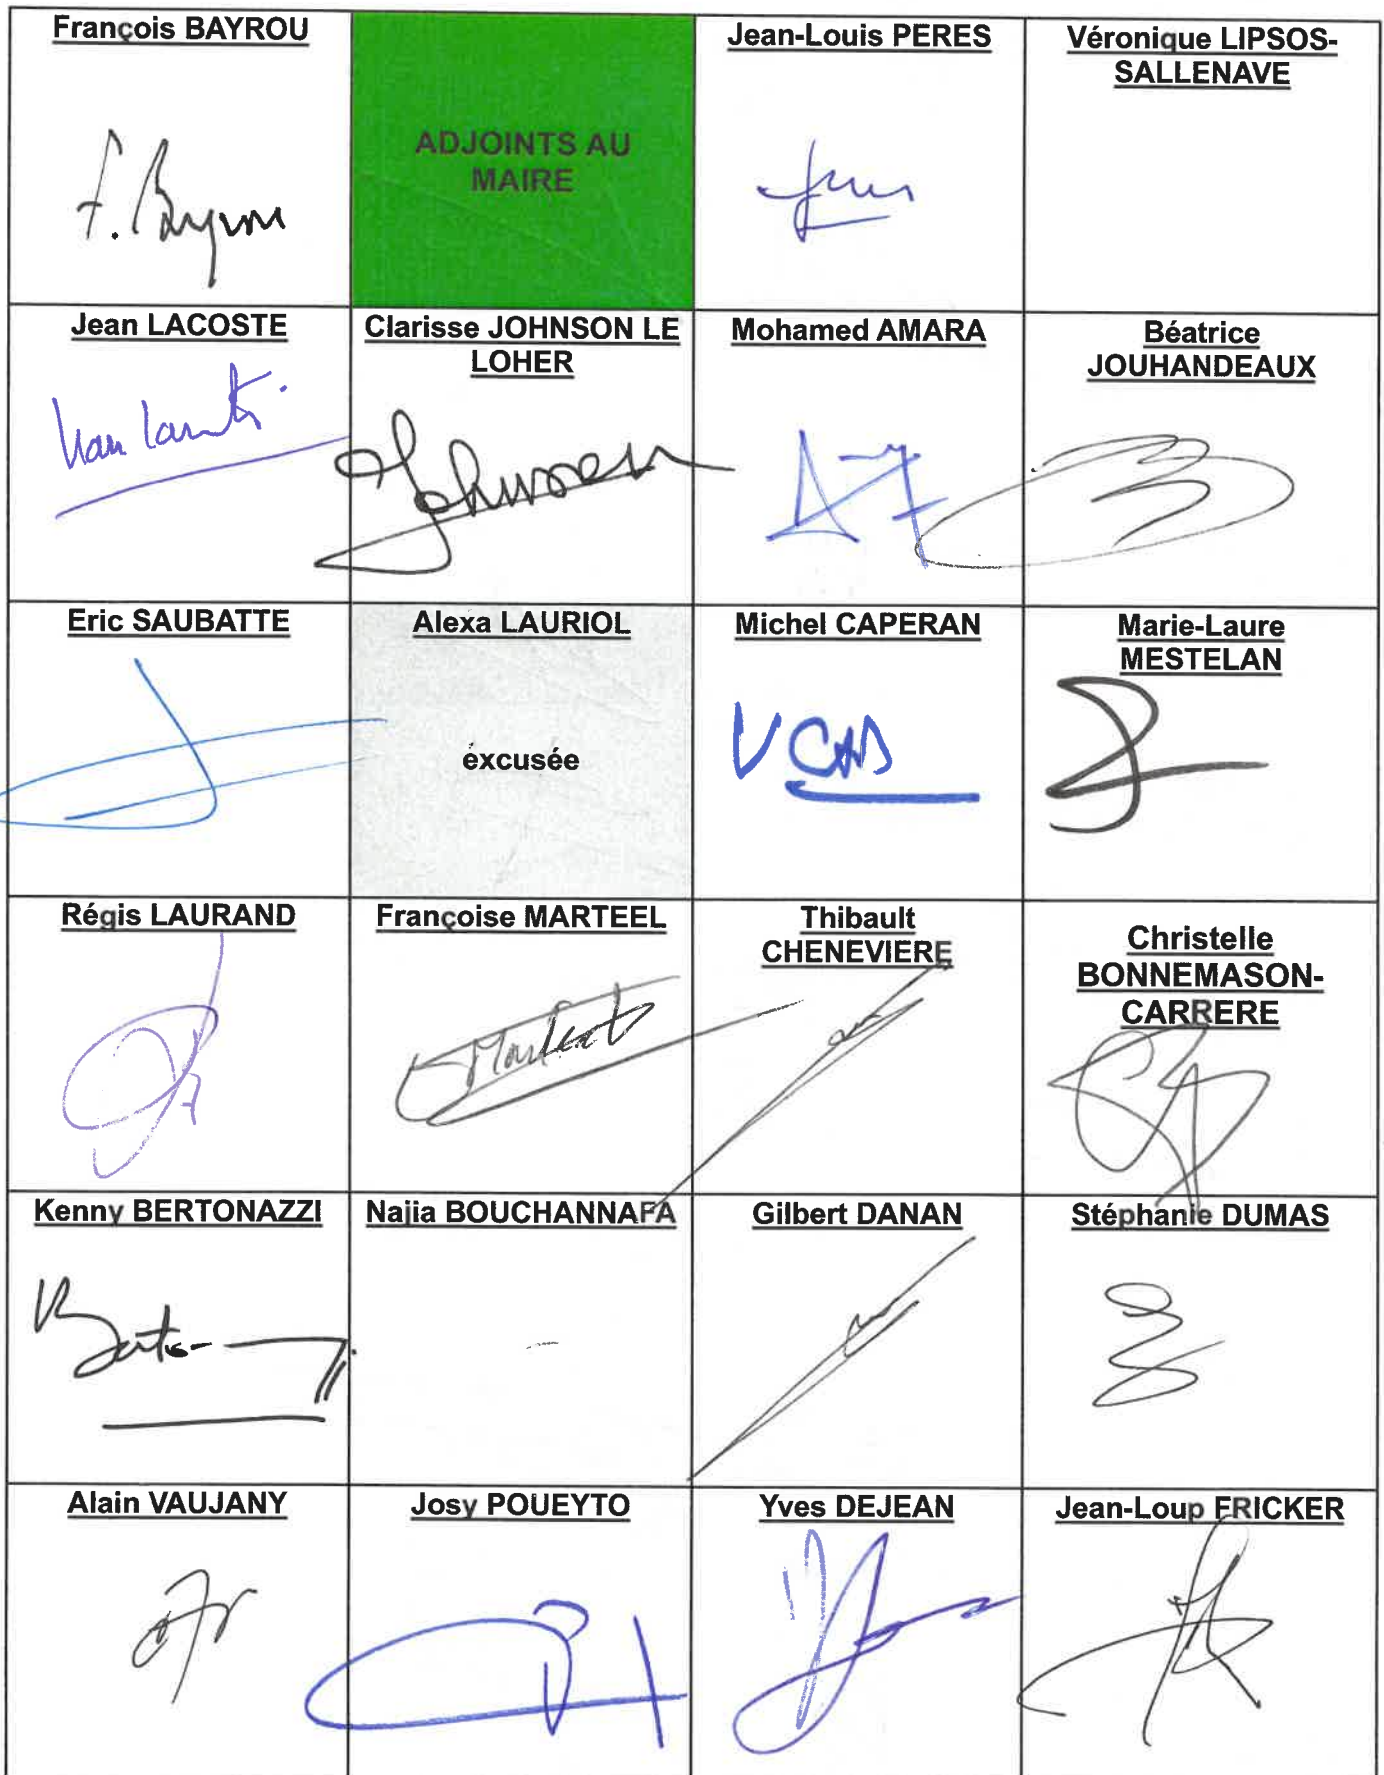 François BAYROU
F. Bayrou
ADJOINTS AU
MAIRE
Jean-Louis PERES
Véronique LIPSOS-
SALLENAVE
Jean LACOSTE
Clarisse JOHNSON LE
LOHER
Johnson
Mohamed AMARA
Béatrice
JOUHANDEAUX
Eric SAUBATTE
Alexa LAURIOL
excusée
Michel CAPERAN
Marie-Laure
MESTELAN
Régis LAURAND
Françoise MARTEEL
Thibault
CHENEVIERE
Christelle
BONNEMASON-
CARRERE
Kenny BERTONAZZI
Najia BOUCHANNAFA
Gilbert DANAN
Stéphanie DUMAS
Alain VAUJANY
Josy POUEYTO
Yves DEJEAN
Jean-Loup FRICKER